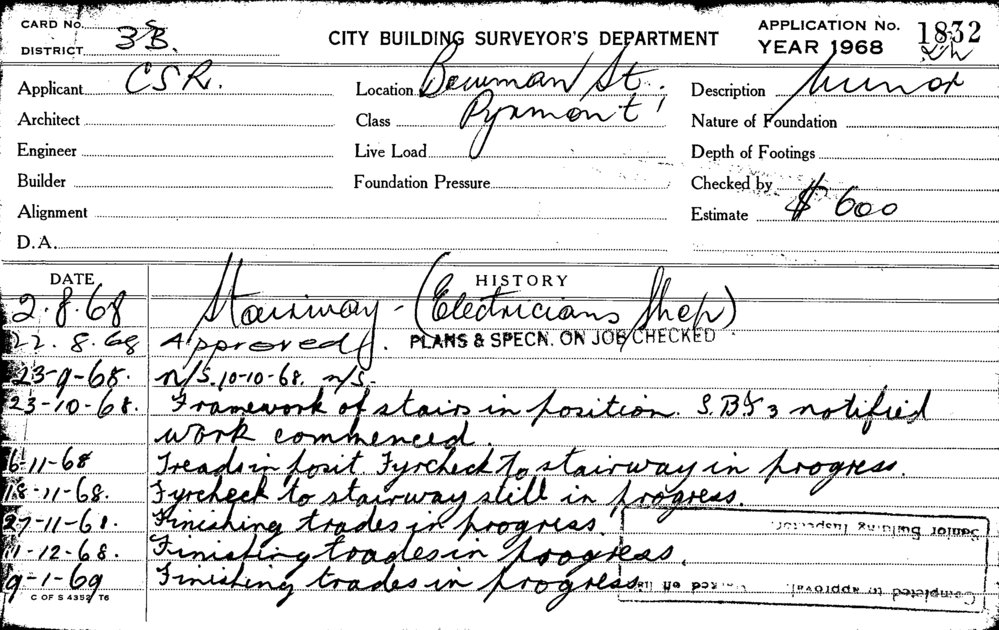 CARD No.
DISTRICT 3B.
CITY BUILDING SURVEYOR'S DEPARTMENT
APPLICATION No. 1832
YEAR 1968
Applicant CSR. Location Bowman St. Description Minor
Architect Class Pyrmont Nature of Foundation
Engineer Live Load Depth of Footings
Builder Foundation Pressure Checked by
Alignment Estimate $ 600
D.A.
DATE HISTORY
2.8.68 Stairway - (Electricians Shop)
22.8.68 Approved. PLANS & SPECN. ON JOB CHECKED
23-9-68. N/S. 10-10-68. N/S.
23-10-68. Framework of stairs in position. S.B.I 3 notified
work commenced.
6-11-68 Treads in posit. Fyrcheck to stairway in progress.
18-11-68. Fyrcheck to stairway still in progress.
27-11-68. Finishing trades in progress.
11-12-68. Finishing trades in progress.
9-1-69 Finishing trades in progress
C OF S 4352 T6
Completed to approval.
Senior Building Inspector.